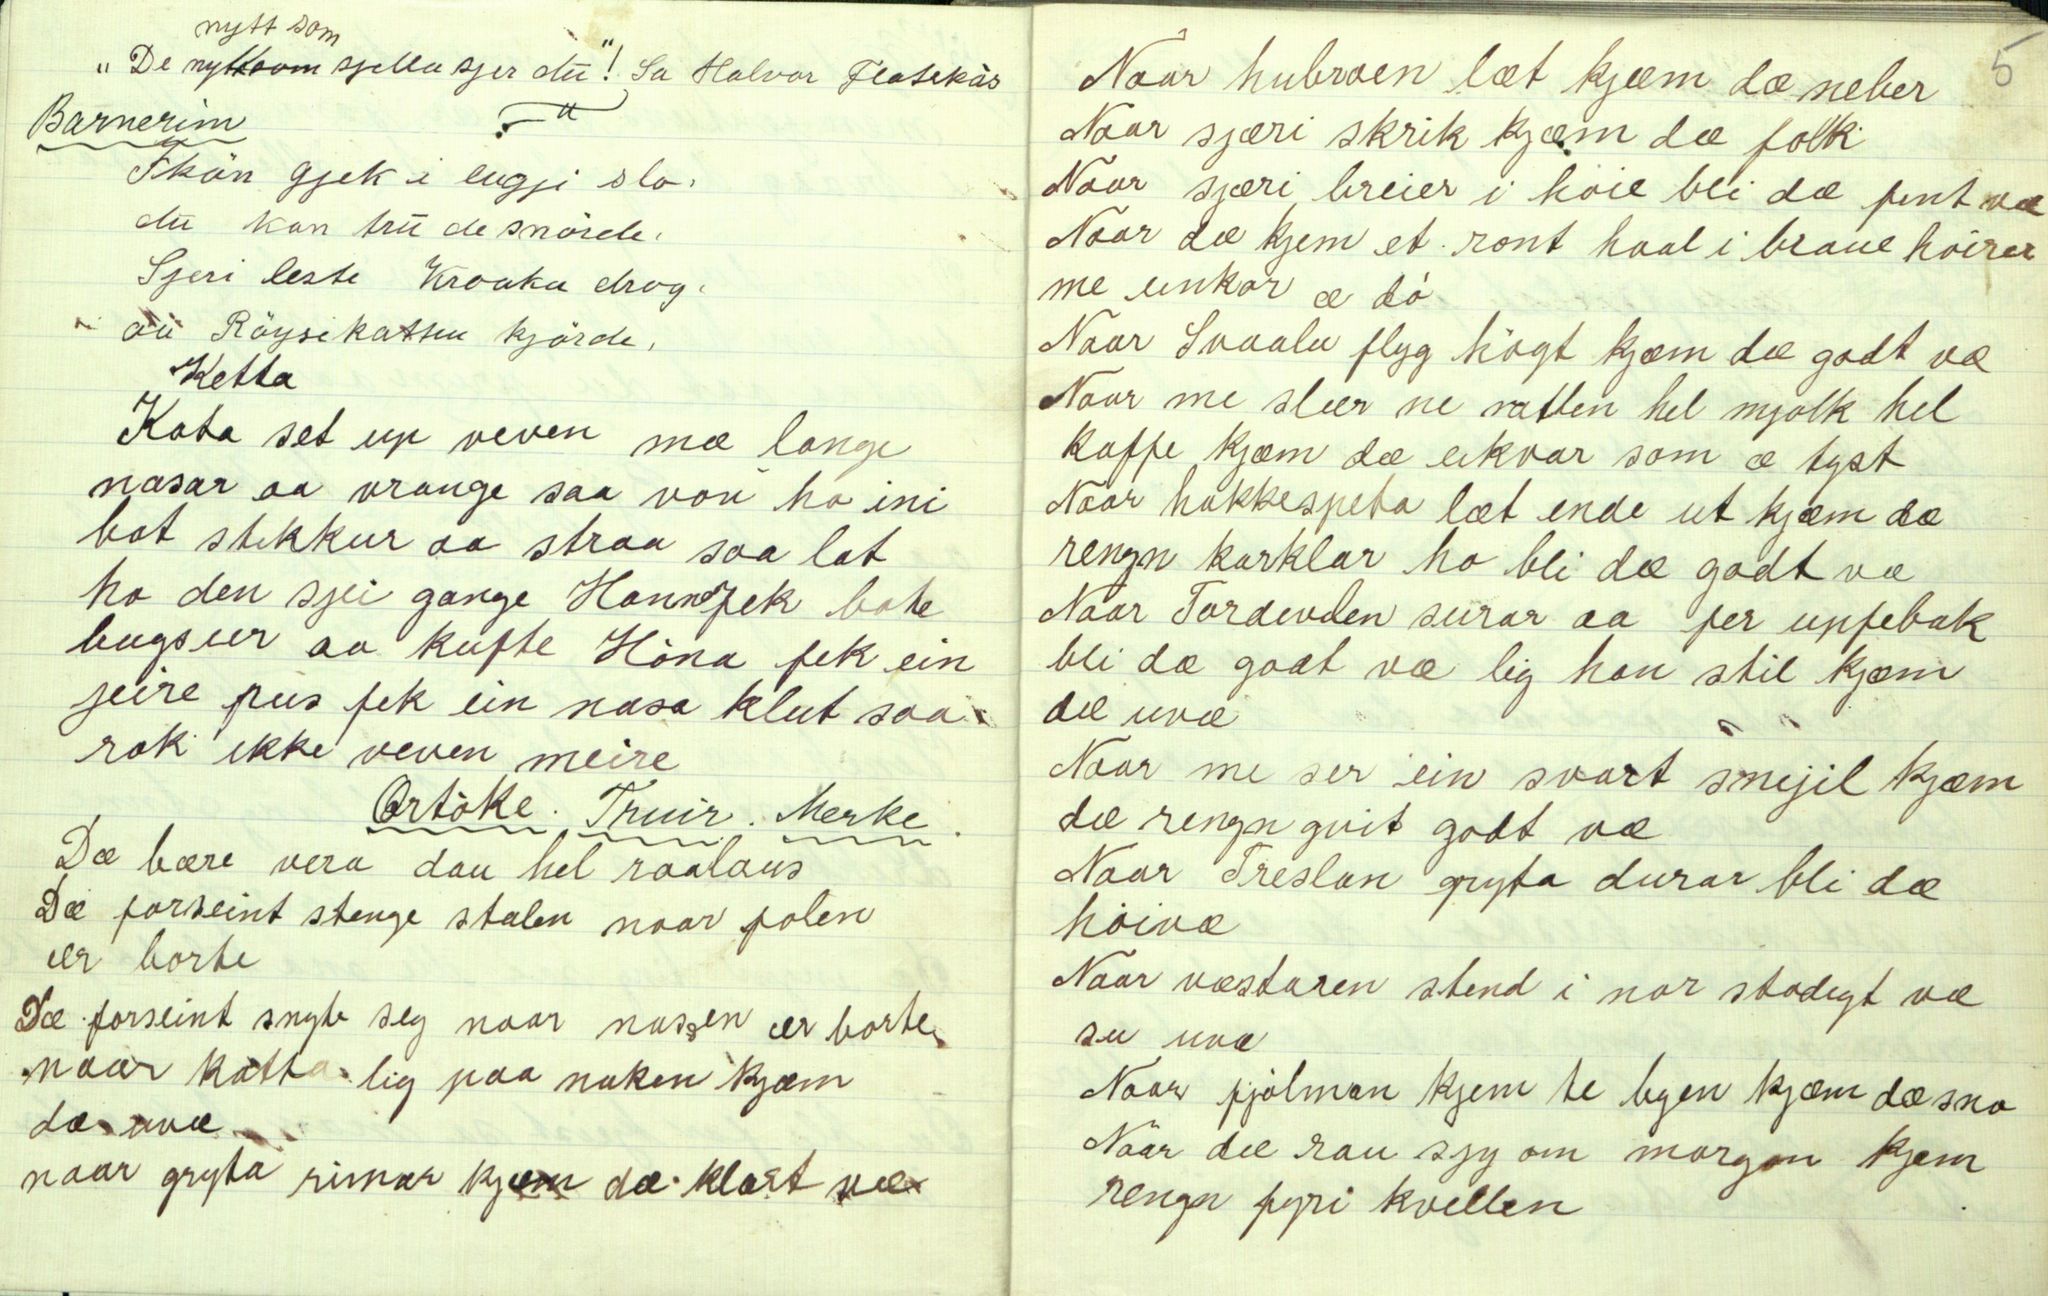 nytt som
"De nyttsom sjella sjer dū"! Sa Halvor Flatekås
Barnerim
Ikån gjek i engji slo.
dū kan trū de snörde.
Sjeri leste Kroaka drog.
aū Röysekattsu kjörde.
Ketta
Kata set up veven mæ lange
nasar aa vrange saa voū ho ini
bot stikkur aa straa saa lat
ho den sjei gange Hannes fek bote
bugsur aa kufte Höna fek ein
jeire pus fek ein nasa klut saa
rak ikke veven meire
Ortöke. Truir. Merke.
Dæ bære vera dau hel raalaus
Dæ forseint stenge stalen naar folen
er borte
Dæ forseint snyte seg naar nasen er borte
naar katta lig paa naken kjæm
dæ uvæ
naar gryta rimar kjæm dæ klart væ
5
Naar hubroen læt kjæm dæ neber
Naar sjæri skrik kjæm dæ folk
Naar sjæri breier i hoie bli dæ pent væ
Naar dæ kjem et ront haal i braue höirer
me einkar æ dö
Naar Svaala flyg högt kjæm dæ godt væ
Naar me slær ne vatten hel mjolk hel
kaffe kjæm dæ eikvar som æ tyst
Naar hakkespeta læt ende ut kjæm dæ
rengn karklar ho bli dæ godt væ
Naar Tordevden surar aa fer uppebak
bli dæ godt væ lig han stil kjæm
dæ uvæ
Naar me ser ein svart snejil kjæm
dæ rengn gvit godt væ
Naar Treslan gryta durar bli dæ
höivæ
Naar væstaren stend i nor stodigt væ
su uvæ
Naar fjölman kjem te bygen kjæm dæ sno
Når dæ rau sjy om morgon kjem
rengn fyri kvellen